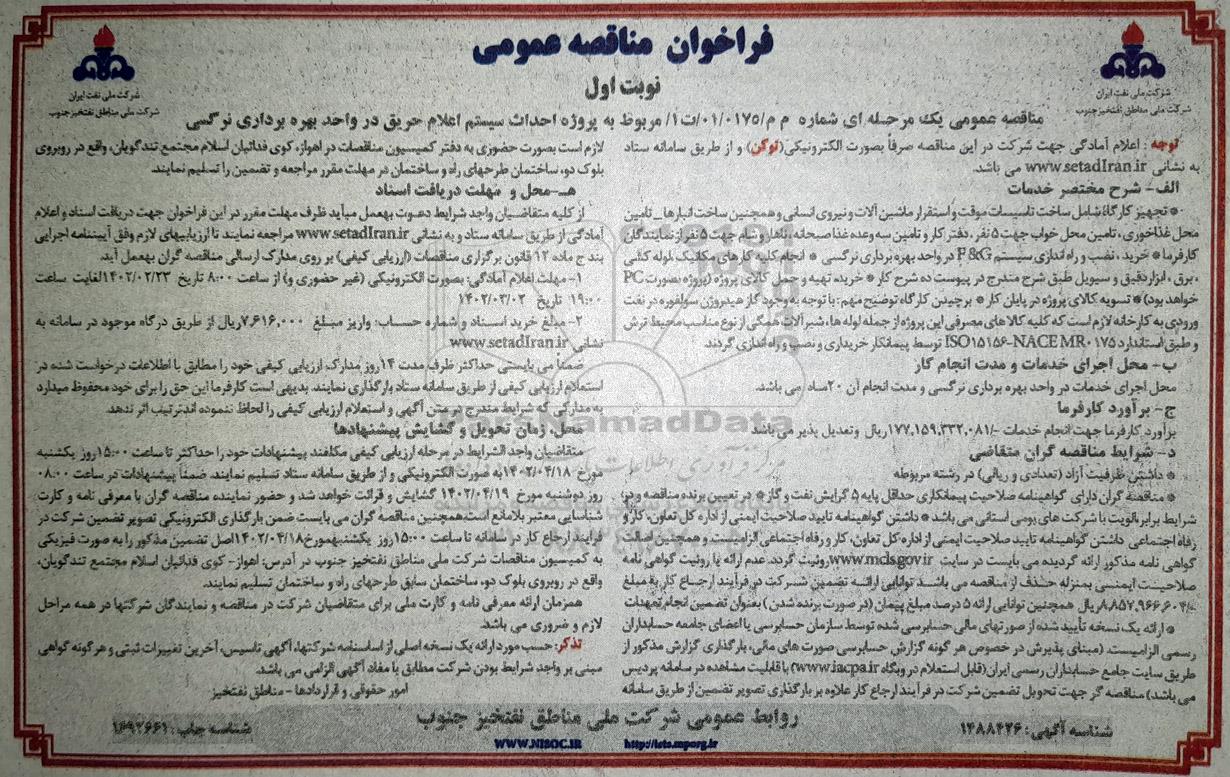 فراخوان مناقصه عمومی
نوبت اول
شرکت ملی نفت ایران
شرکت ملی مناطق نفتخیز جنوب
شرکت ملی نفت ایران
شرکت ملی مناطق نفتخیز جنوب
مناقصه عمومی یک مرحله ای شماره م م/۰۱/۰۱۷۵/ت۱/ مربوط به پروژه احداث سیستم اعلام حریق در واحد بهره برداری نرگسی
توجه : اعلام آمادگی جهت شرکت در این مناقصه صرفاً بصورت الکترونیکی(توکن) و از طریق سامانه ستاد
به نشانی www.setadIran.ir می باشد.
الف- شرح مختصر خدمات
* تجهیز کارگاه شامل ساخت تاسیسات موقت و استقرار ماشین آلات و نیروی انسانی و همچنین ساخت انبارها_ تامین
محل غذاخوری ، تامین محل خواب جهت ۵ نفر ، دفتر کار و تامین سه وعده غذا صبحانه ، ناهار و شام جهت ۵ نفر از نمایندگان
کارفرما * خرید ، نصب و راه اندازی سیستم F&G در واحد بهره برداری نرگسی * انجام کلیه کار های مکانیک ،لوله کشی
، برق ، ابزار دقیق و سیویل طبق شرح مندرج در پیوست ده شرح کار * خرید، تهیه و حمل کالای پروژه (پروژه بصورت PC
خواهد بود) * تسویه کالای پروژه در پایان کار * برچیدن کارگاه توضیح مهم: با توجه به وجود گاز هیدروژن سولفوره در نفت
ورودی به کارخانه لازم است که کلیه کالا های مصرفی این پروژه از جمله لوله ها ، شیرآلات همگی از نوع مناسب محیط ترش
و طبق استاندارد ISO۱۵۱۵۶-NACE MR۰۱۷۵ توسط پیمانکار خریداری و نصب و راه اندازی گردند.
ب- محل اجرای خدمات و مدت انجام کار
محل اجرای خدمات در واحد بهره برداری نرگسی و مدت انجام آن ۲۰ماه می باشد.
ج- برآورد کارفرما
برآورد کارفرما جهت انجام خدمات -/۱۷۷,۱۵۹,۳۳۲,۰۸۱ریال وتعدیل پذیر می باشد
د- شرایط مناقصه گران متقاضی
* داشتن ظرفیت آزاد (تعدادی و ریالی) در رشته مربوطه
* مناقصه گران دارای گواهینامه صلاحیت پیمانکاری حداقل پایه ۵ گرایش نفت و گاز * در تعیین برنده مناقصه و در
شرایط برابر الویت با شرکت های بومی استانی می باشد * داشتن گواهینامه تایید صلاحیت ایمنی از اداره کل تعاون، کار و
رفاه اجتماعی داشتن گواهینامه تایید صلاحیت ایمنی از اداره کل تعاون، کار و رفاه اجتماعی الزامیست و همچنین اصالت
گواهی نامه مذکور ارائه گردیده می بایست در سایت www.mcls.gov.ir رویت گردد. عدم ارائه یا رویت گواهی نامه
صلاحیت ایمنی بمنزله حذف از مناقصه می باشد توانایی ارائه تضمین شرکت در فرآیند ارجاع کار به مبلغ
-/۸,۸۵۷,۹۶۶,۶۰۴ریال همچنین توانایی ارائه ۵ درصد مبلغ پیمان (در صورت برنده شدن ) بعنوان تضمین انجام تعهدات
* ارائه یک نسخه تأیید شده از صورتهای مالی حسابرسی شده توسط سازمان حسابرسی یا اعضای جامعه حسابداران
رسمی الزامیست. (مبنای پذیرش در خصوص هر گونه گزارش حسابرسی صورت های مالی، بارگذاری گزارش مذکور از
طریق سایت جامع حسابداران رسمی ایران (قابل استعلام در وبگاه www.iacpa.ir) با قابلیت مشاهده در سامانه پردیس
می باشد) مناقصه گر جهت تحویل تضمین شرکت در فرآیند ارجاع کار علاوه بر بارگذاری تصویر تضمین از طریق سامانه
لازم است بصورت حضوری به دفتر کمیسیون مناقصات در اهواز، کوی فدائیان اسلام مجتمع تندگویان، واقع در روبروی
بلوک دو، ساختمان طرحهای راه و ساختمان در مهلت مقرر مراجعه و تضمین را تسلیم نمایند.
هـ-محل و مهلت دریافت اسناد
از کلیه متقاضیان واجد شرایط دعوت بهعمل میآید ظرف مهلت مقرر در این فراخوان جهت دریافت اسناد و اعلام
آمادگی از طریق سامانه ستاد و به نشانی www.setadIran.ir مراجعه نمایند تا ارزیابیهای لازم وفق آییننامه اجرایی
بند ج ماده ۱۲ قانون برگزاری مناقصات (ارزیابی کیفی) بر روی مدارک ارسالی مناقصه گران بهعمل آید.
۱- مهلت اعلام آمادگی: بصورت الکترونیکی (غیر حضوری و) از ساعت ۸:۰۰ تاریخ ۱۴۰۲/۰۲/۲۳لغایت ساعت
۱۹:۰۰ تاریخ ۱۴۰۲/۰۳/۰۲
۲- مبلغ خرید اسناد و شماره حساب: واریز مبلغ ۷,۶۱۶,۰۰۰ریال از طریق درگاه موجود در سامانه به
نشانی www.setadIran.ir
ضمناً می بایستی حداکثر ظرف مدت ۱۴ روز مدارک ارزیابی کیفی خود را مطابق با اطلاعات درخواست شده در
استعلام ارزیابی کیفی از طریق سامانه ستاد بارگذاری نمایند. بدیهی است کارفرما این حق را برای خود محفوظ میدارد
به مدارکی که شرایط مندرج در متن آگهی و استعلام ارزیابی کیفی را لحاظ ننموده اندترتیب اثر ندهد.
محل، زمان تحویل و گشایش پیشنهادها
متقاضیان واجد الشرایط در مرحله ارزیابی کیفی مکلفند پیشنهادات خود را حداکثر تا ساعت ۱۵:۰۰روز یکشنبه
مورخ ۱۴۰۲/۰۴/۱۸به صورت الکترونیکی و از طریق سامانه ستاد تسلیم نمایند. ضمناً پیشنهادات در ساعت ۰۸:۰۰
روز دوشنبه مورخ ۱۴۰۲/۰۴/۱۹ گشایش و قرائت خواهد شد و حضور نماینده مناقصه گران با معرفی نامه و کارت
شناسایی معتبر بلامانع است.همچنین مناقصه گران می بایست ضمن بارگذاری الکترونیکی تصویر تضمین شرکت در
فرآیند ارجاع کار در سامانه تا ساعت ۱۵:۰۰روز یکشنبهمورخ۱۴۰۲/۰۴/۱۸اصل تضمین مذکور را به صورت فیزیکی
به کمیسیون مناقصات شرکت ملی مناطق نفتخیز جنوب در آدرس: اهواز- کوی فدائیان اسلام مجتمع تندگویان،
واقع در روبروی بلوک دو، ساختمان سابق طرحهای راه و ساختمان تسلیم نمایند.
همزمان ارائه معرفی نامه و کارت ملی برای متقاضیان شرکت در مناقصه و نمایندگان شرکتها در همه مراحل
لازم و ضروری می باشد.
تذکر: حسب مورد ارائه یک نسخه اصلی از اساسنامه شرکتها، آگهی تاسیس، آخرین تغییرات ثبتی و هر گونه گواهی
مبنی بر واجد شرایط بودن شرکت مطابق با مفاد آگهی الزامی می باشد.
امور حقوقی و قراردادها - مناطق نفتخیز
روابط عمومی شرکت ملی مناطق نفتخیز جنوب
شناسه آگهی : ۱۴۸۸۴۲۶
شناسه چاپ : ۱۶۹۲۶۶۱
WWW.NISOC.IR http://iets.mporg.ir
ParsNamadData